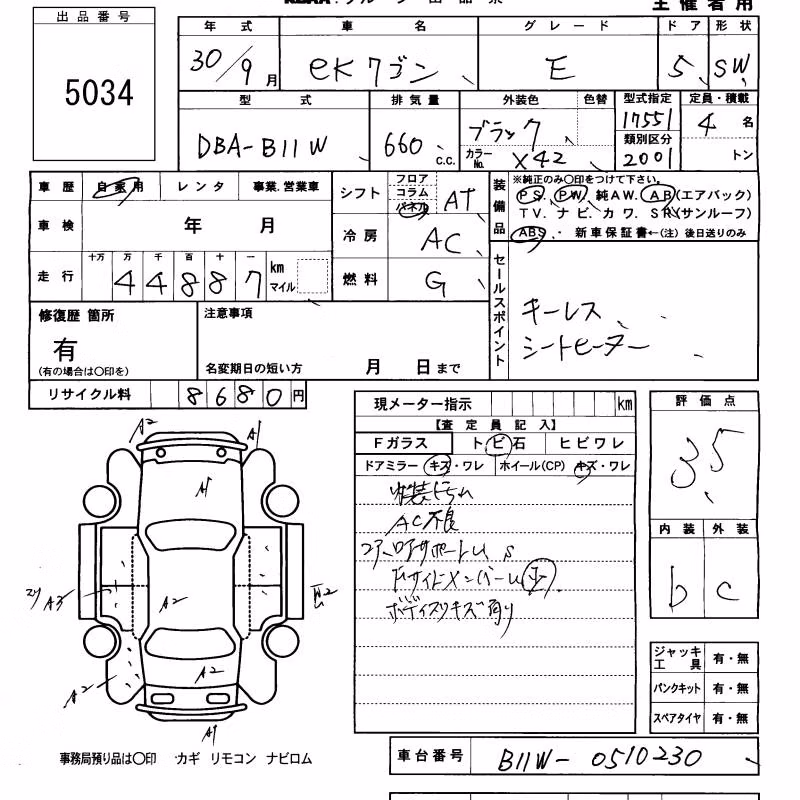 主催者用
出品番号
5034
年式 車名 グレード ドア 形状
30/9月 eKワゴン E 5 SW
型式 排気量 外装色 色替 型式指定 定員・積載
DBA-B11W 660 C.C. ブラック カラーNo. X42 17551 4名
類別区分
2001 トン
車歴 自家用 レンタ 事業.営業車
シフト フロア コラム パネル AT
装備品
※純正のみ〇印をつけて下さい。
PS. PW. 純AW. AB(エアバック)
TV. ナビ. カワ. SR(サンルーフ)
ABS. ・ 新車保証書←(注) 後日送りのみ
車検 年 月
冷房 AC
走行 十万 万 千 百 十 一 km マイル
44887
燃料 G
セールスポイント
キーレス
シートヒーター
修復歴 箇所
有
(有の場合は〇印を)
注意事項
名変期日の短い方 月 日まで
リサイクル料 8680円
現メーター指示 km
【査定員記入】
Fガラス トビ石 ヒビワレ
ドアミラー キズ・ワレ ホイール(CP) キズ・ワレ
AC不良
ボディスリキズ有り
評価点
3.5
内装 外装
b c
ジャッキ 工具 有・無
パンクキット 有・無
スペアタイヤ 有・無
A2
A1
A1
A3
A2
W2
A2
A2
A1
事務局預り品は〇印 カギ リモコン ナビロム
車台番号 B11W-0510230